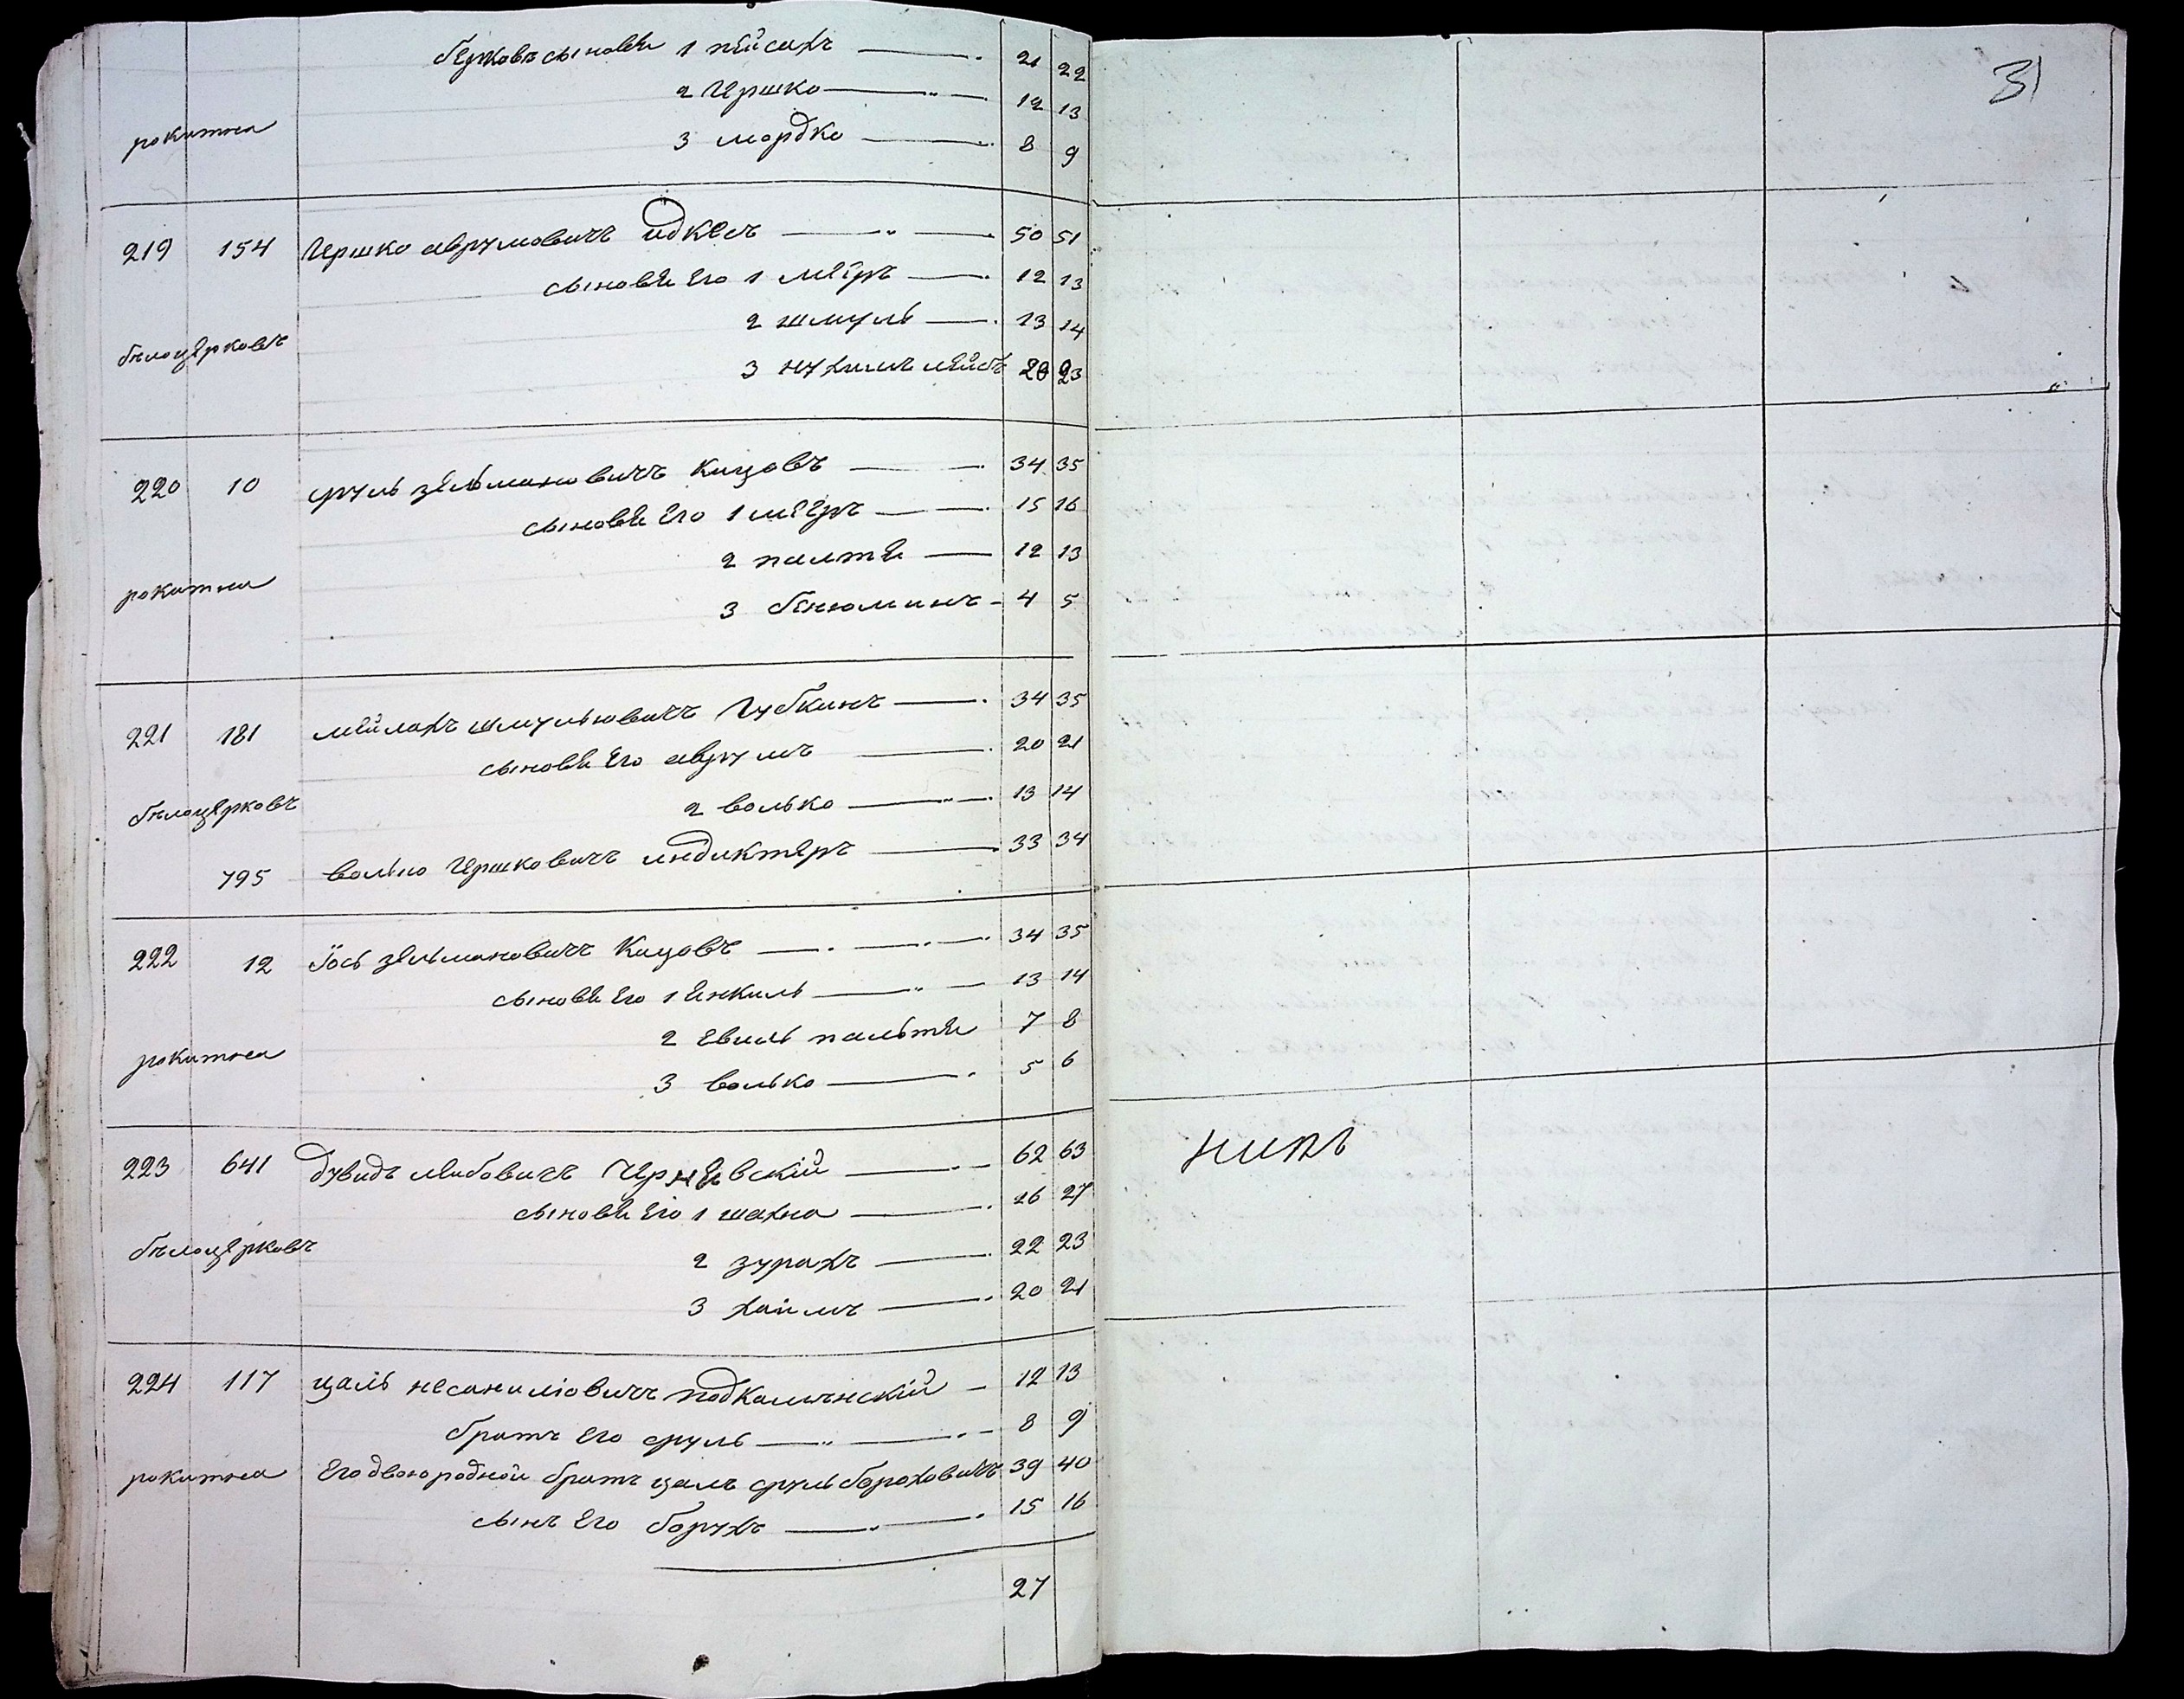 берковъ сыновья 1 пейсахъ 21 22
2 Гершко 12 13
рокитна 3 мордко 8 9
219 154 Гершко аврумовичъ идкесъ 50 51
сыновья Его 1 меіръ 12 13
2 шмуль 13 14
бѣлоцерковъ
3 нухимъ лейбъ 23
220 10 сруль зельмановичъ Кицовъ 34 35
сыновья Его 1 меіръ 15 16
2 палтья 12 13
рокитна
3 бенюминъ 4 5
221 181 мейлахъ шмульовичъ Губкинъ 34 35
сыновья Его аврумъ 20 21
бѣлоцерковъ
2 волько 13 14
795 волько Гершковичъ индиктеръ 33 34
222 12 Іось зельмановичъ Кицовъ 34 35
сыновья Его 1 Янкиль 13 14
2 Евель пальтья 7 8
рокитна
3 волько 5 6
223 641 дувидъ лейбовичъ Чернявскій 62 63
сыновья Его 1 шахна 26 27
бѣлоцерковъ
2 зурахъ 22 23
3 хаимъ 20 21
224 117 цаль несанилiовичъ подкаминскій 12 13
братъ Его сруль 8 9
рокитна Его двоюродной братъ цаль сруль бороховичъ 39 40
сынъ Его борухъ 15 16
27
31